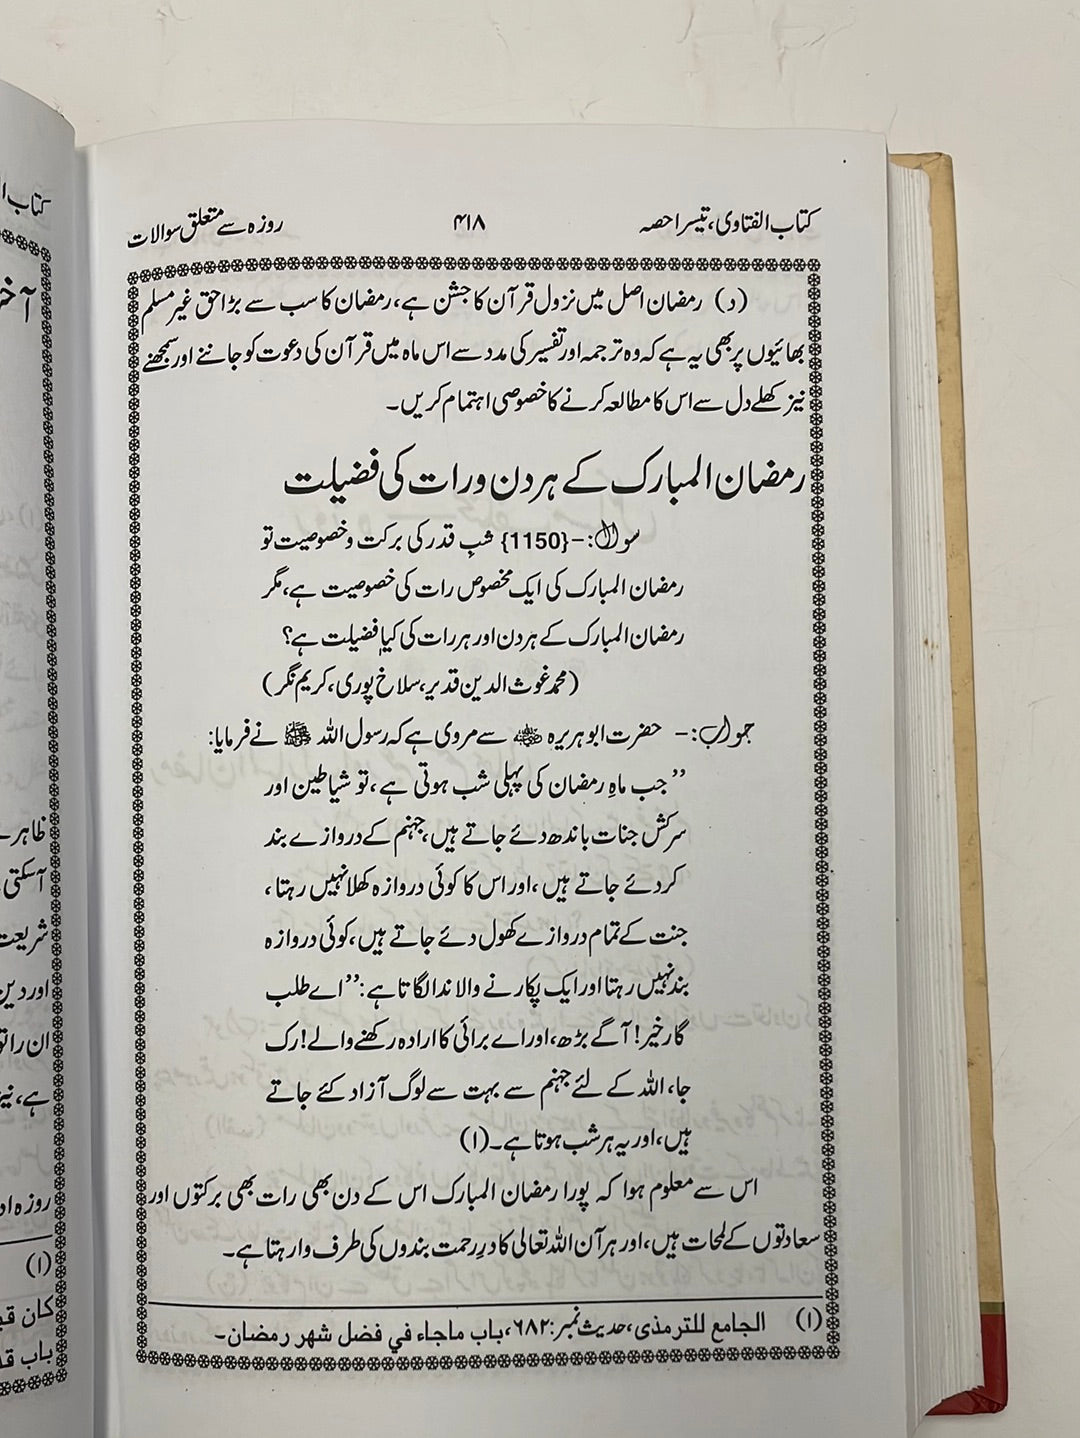 کتاب الفتاوی، تیسرا حصہ ۴۱۸ روزہ سے متعلق سوالات
(د) رمضان اصل میں نزول قرآن کا جشن ہے، رمضان کا سب سے بڑا حق غیر مسلم
بھائیوں پر بھی یہ ہے کہ وہ ترجمہ اور تفسیر کی مدد سے اس ماہ میں قرآن کی دعوت کو جاننے اور سمجھنے
نیز کھلے دل سے اس کا مطالعہ کرنے کا خصوصی اہتمام کریں۔
رمضان المبارک کے ہر دن ورات کی فضیلت
سوال:- {1150} شبِ قدر کی برکت وخصوصیت تو
رمضان المبارک کی ایک مخصوص رات کی خصوصیت ہے، مگر
رمضان المبارک کے ہر دن اور ہر رات کی کیا فضیلت ہے؟
(محمد غوث الدین قدیر، سلاخ پوری، کریم نگر)
جواب:- حضرت ابو ہریرہ رضی اللہ عنہ سے مروی ہے کہ رسول اللہ ﷺ نے فرمایا:
”جب ماہِ رمضان کی پہلی شب ہوتی ہے، تو شیاطین اور
سرکش جنات باندھ دئے جاتے ہیں، جہنم کے دروازے بند
کردئے جاتے ہیں، اور اس کا کوئی دروازہ کھلا نہیں رہتا،
جنت کے تمام دروازے کھول دئے جاتے ہیں، کوئی دروازہ
بند نہیں رہتا اور ایک پکارنے والا ندا لگاتا ہے: ”اے طلب
گار خیر! آگے بڑھ، اور اے برائی کا ارادہ رکھنے والے! رک
جا، اللہ کے لئے جہنم سے بہت سے لوگ آزاد کئے جاتے
ہیں، اور یہ ہر شب ہوتا ہے۔ (۱)
اس سے معلوم ہوا کہ پورا رمضان المبارک اس کے دن بھی رات بھی برکتوں اور
سعادتوں کے لمحات ہیں، اور ہر آن اللہ تعالی کا درِ رحمت بندوں کی طرف وا رہتا ہے۔
(۱) الجامع للترمذی، حدیث نمبر: ۶۸۲، باب ماجاء في فضل شهر رمضان۔
کتاب ا
آخر
ظاہر ہے
آسکتی
شریعت
اور دین
ان را تو
ہے، نیز
روزہ اد
(۱)
كان قب
باب قد